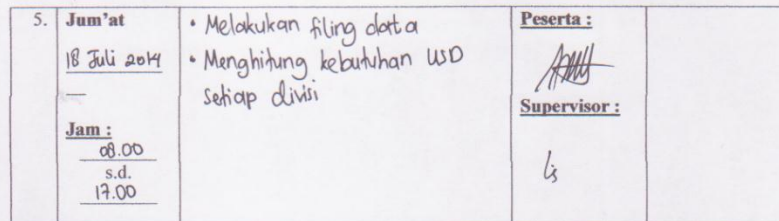 5.
Jum'at
18 Juli 2014
Jam :
08.00
s.d.
17.00
• Melakukan filing data
• Menghitung kebutuhan USD
setiap divisi
Peserta :
Supervisor :